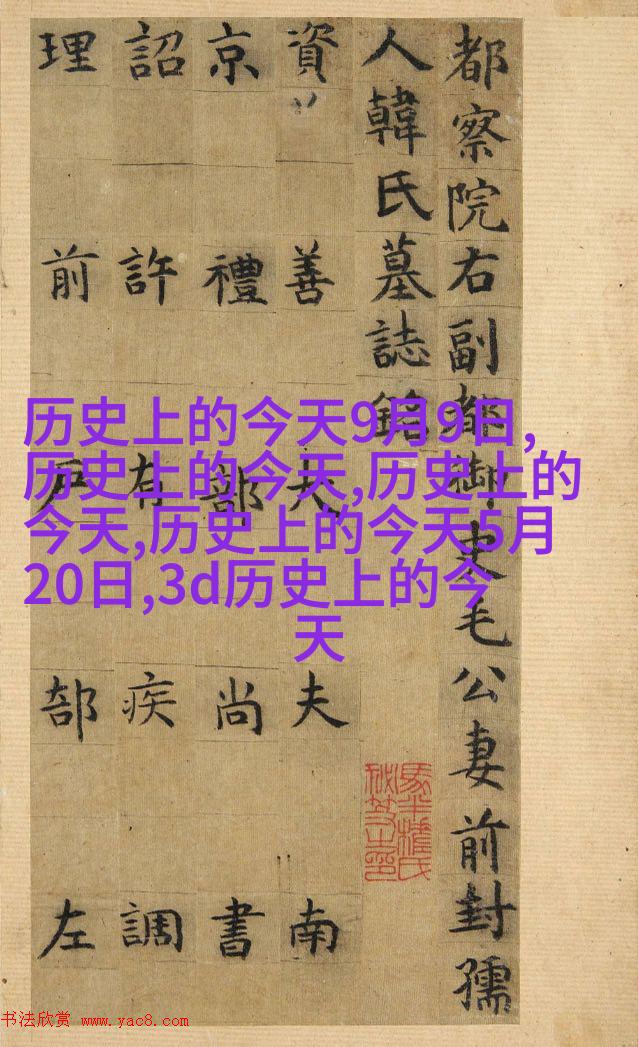 都察院右副都御史毛公妻前封孺
人韓氏墓誌銘
資善大夫南
京禮部尚書
詔許有疾調
理前戶部左
历史上的今天9月9日,
历史上的今天,历史上的
今天,历史上的今天5月
20日,3d历史上的今
天
书法欣赏 www.yac8.com